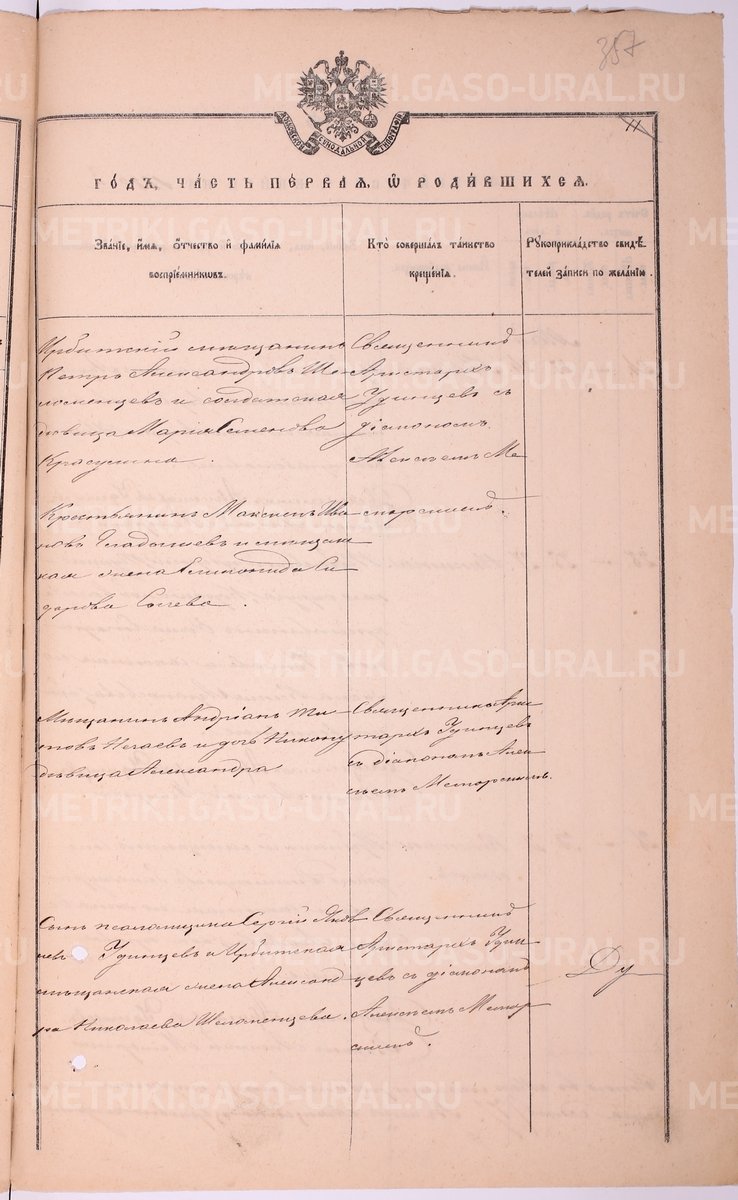 357
11
МОСКОВСКОЙ СѴНОДАЛЬНОЙ ТИПОГРАФІИ
ГО́ДЪ, ЧА́СТЬ ПЕ́РВАЯ, Ѡ҆ РОДИ́ВШИХСЯ.
Зва́нїе, и҆́мя, ѻ҆́тчество и҆ фами́лїя
воспрїе́мникѡвъ.
Кто̀ соверша́лъ та́инство
креще́нїя.
Рꙋкоприкла́дство свидѣ́-
телей за́писи по жела́нїю.
Ирбитскій мѣщанинъ
Петръ Александровъ Ше-
ломенцевъ и солдатская
дѣвица Марія Семенова
Красулина.
Священникъ
Аристархъ
Удинцевъ съ
діакономъ
Алексѣемъ Ме
морскимъ.
Крестьянинъ Максимъ Ива
новъ Гладышевъ и мѣщан-
ская жена Елисавета Си
дорова Сычева.
Мѣщанинъ Андріанъ Ти-
товъ Нечаевъ и дочь
дѣвица Александра
Священникъ Ари-
стархъ Удинцевъ
съ діакономъ Алек-
сѣемъ Меморскимъ.
Сынъ псаломщика Сергій Яков
левъ Удинцевъ и Ирбитская
мѣщанская жена Александ
ра Николаева Шеломенцева.
Священникъ
Аристархъ Удин-
цевъ съ діакономъ
Алексѣемъ Мемор
скимъ.
Ду
METRIKI.GASO-URAL.RU